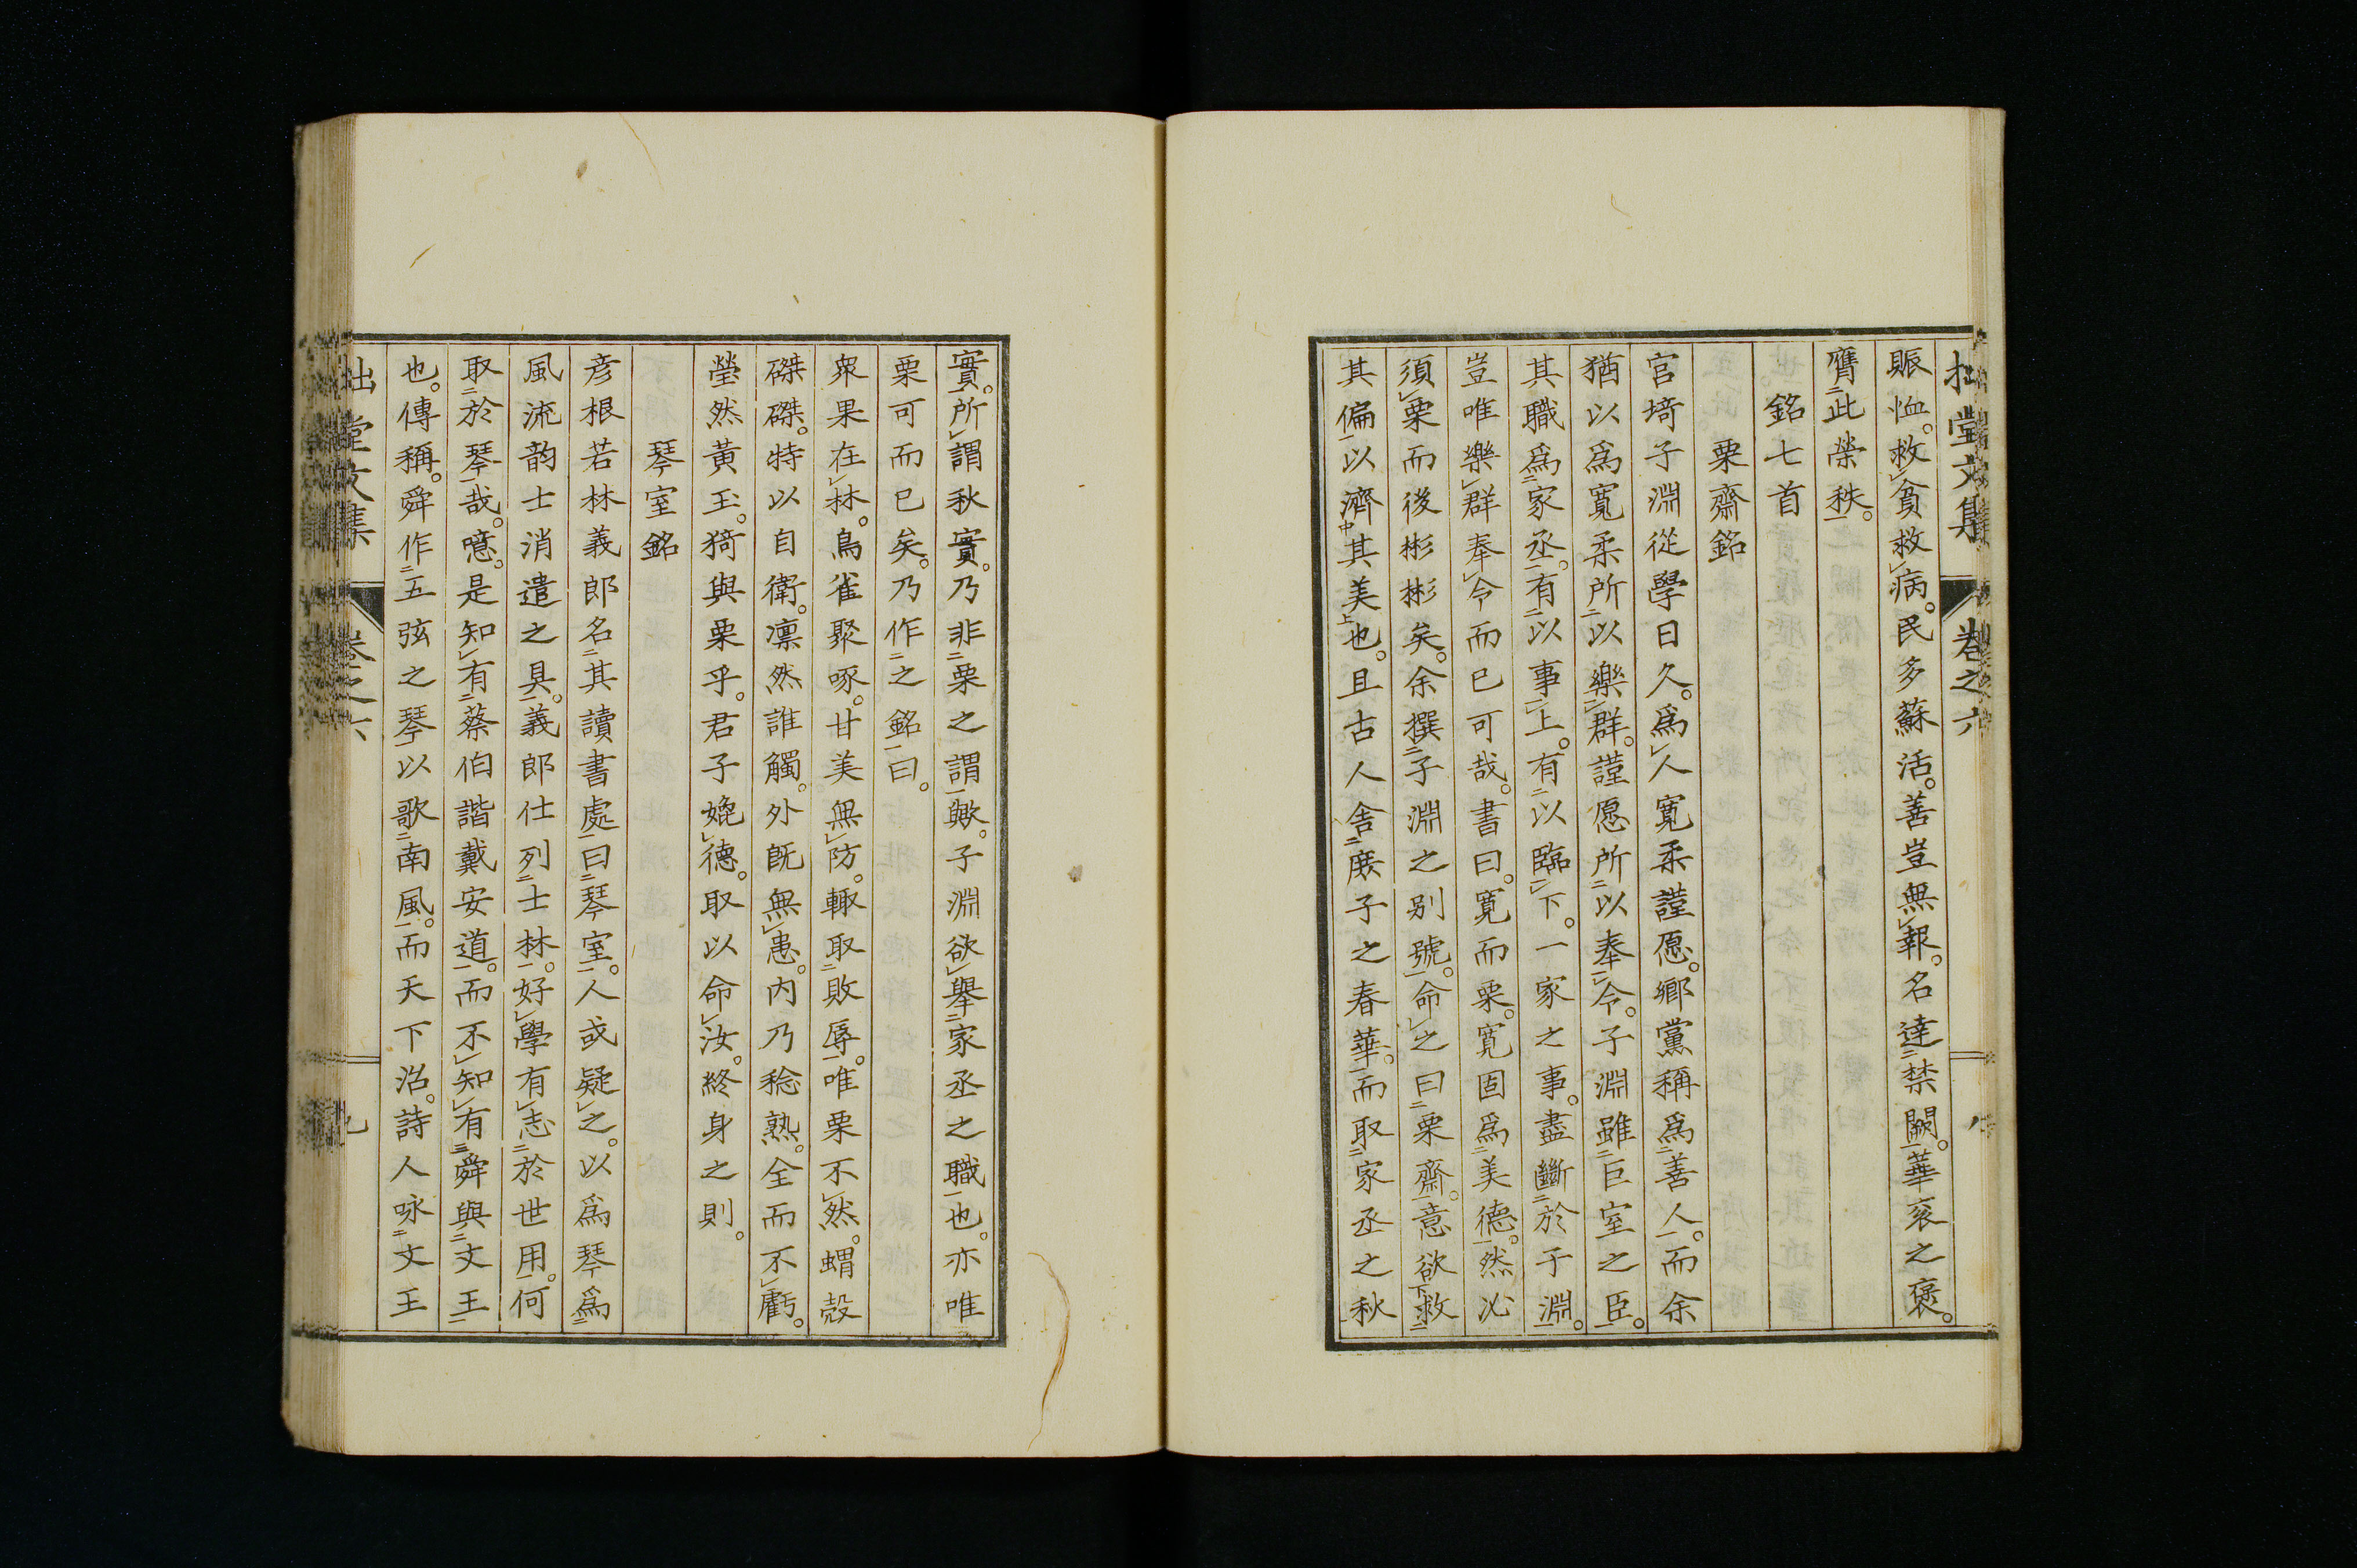 拙堂文集 卷之六 八
賑恤。救貧救病。民多蘇活。善豈無報。名達禁闕。華袞之褒。
膺此榮秩。
銘七首
栗齋銘
宮埼子淵從學日久。爲人寬柔謹愿。鄉黨稱爲善人。而余
猶以爲寬柔所以樂群。謹愿所以奉令。子淵雖巨室之臣。
其職爲家丞。有以事上。有以臨下。一家之事。盡斷於子淵。
豈唯樂群奉令而已可哉。書曰。寬而栗。寬固爲美德。然必
須栗而後彬彬矣。余撰子淵之別號。命之曰栗齋。意欲救
其偏以濟其美也。且古人舍庶子之春華。而取家丞之秋
實。所謂秋實。乃非栗之謂歟。子淵欲舉家丞之職也。亦唯
栗可而已矣。乃作之銘曰。
衆果在林。鳥雀聚啄。甘美無防。輙取敗辱。唯栗不然。蝟殼
磔磔。特以自衛。凛然誰觸。外既無患。內乃稔熟。全而不虧。
瑩然黃玉。猗與栗乎。君子媲德。取以命汝。終身之則。
琴室銘
彥根若林義郎名其讀書處曰琴室。人或疑之。以爲琴爲
風流韵士消遣之具。義郎仕列士林。好學有志於世用。何
取於琴哉。噫。是知有蔡伯諧戴安道。而不知有舜與文王
也。傳稱。舜作五弦之琴以歌南風。而天下治。詩人咏文王
拙堂文集 卷之六 九